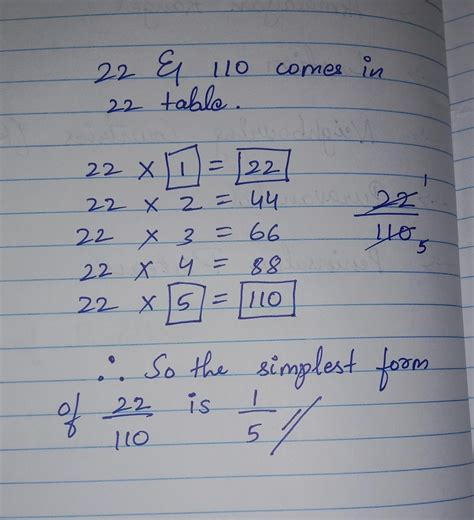 22 & 110 comes in
22 table.
22 × 1 = 22
22 × 2 = 44
22 × 3 = 66
22 × 4 = 88
22 × 5 = 110
22 1
110 5
∴ So the simplest form
of 22/110 is 1/5 //